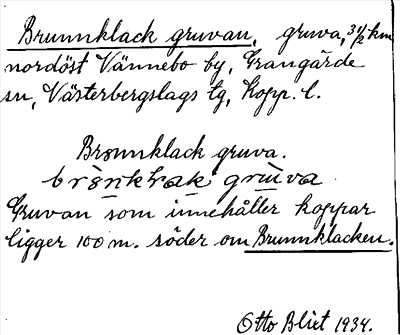 Brunnklack gruvan, gruva, 3 1/2 km
nordöst Vännebo by, Grangärde
sn, Västerbergslags tg, Kopp. l.
Brønnklack gruva.
Gruvan som innehåller koppar
ligger 100 m. söder om Brunnklacken.
Otto Blixt 1934.